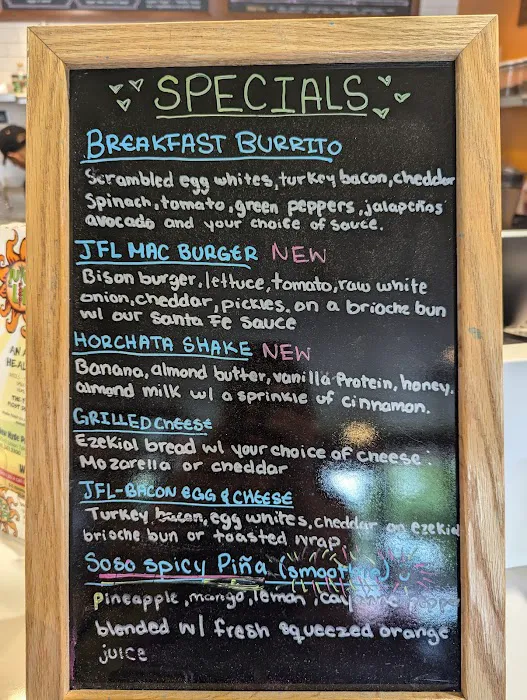 SPECIALS
BREAKFAST BURRITO
Scrambled egg whites, turkey bacon, cheddar
Spinach, tomato, green peppers, jalapeños
avocado and your choice of sauce.
JFL MAC BURGER NEW
Bison burger, lettuce, tomato, raw white
onion, cheddar, pickles. on a brioche bun
w/ our Santa Fe sauce
HORCHATA SHAKE NEW
Banana, almond butter, vanilla Protein, honey,
almond milk w/ a sprinkle of cinnamon.
GRILLED CHEESE
Ezekial bread w/ your choice of cheese:
Mozarella or cheddar
JFL-BACON EGG & CHEESE
Turkey bacon, egg whites, cheddar on ezekial
brioche bun or toasted wrap
Soso spicy Piña (smoothie)
Pineapple, mango, lemon,
blended w/ fresh squeezed orange
juice